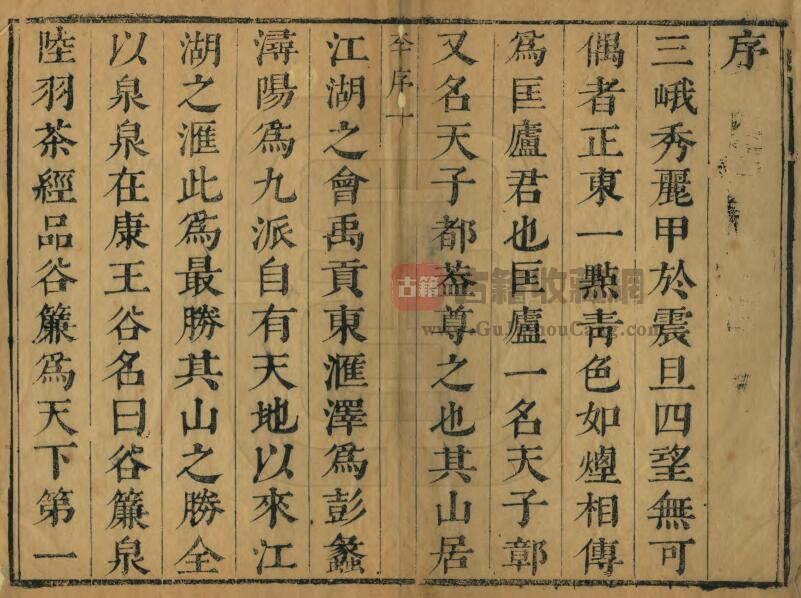 序
三峨秀麗甲於震旦四望無可
偶者正東一點青色如煙相傳
為匡廬君也匡廬一名天子鄣
又名天子都葢尊之也其山居
序一
江湖之會禹貢東滙澤為彭蠡
潯陽為九派自有天地以來江
湖之滙此為最勝其山之勝全
以泉泉在康王谷名曰谷簾泉
陸羽茶經品谷簾為天下第一
古籍
古籍收藏網